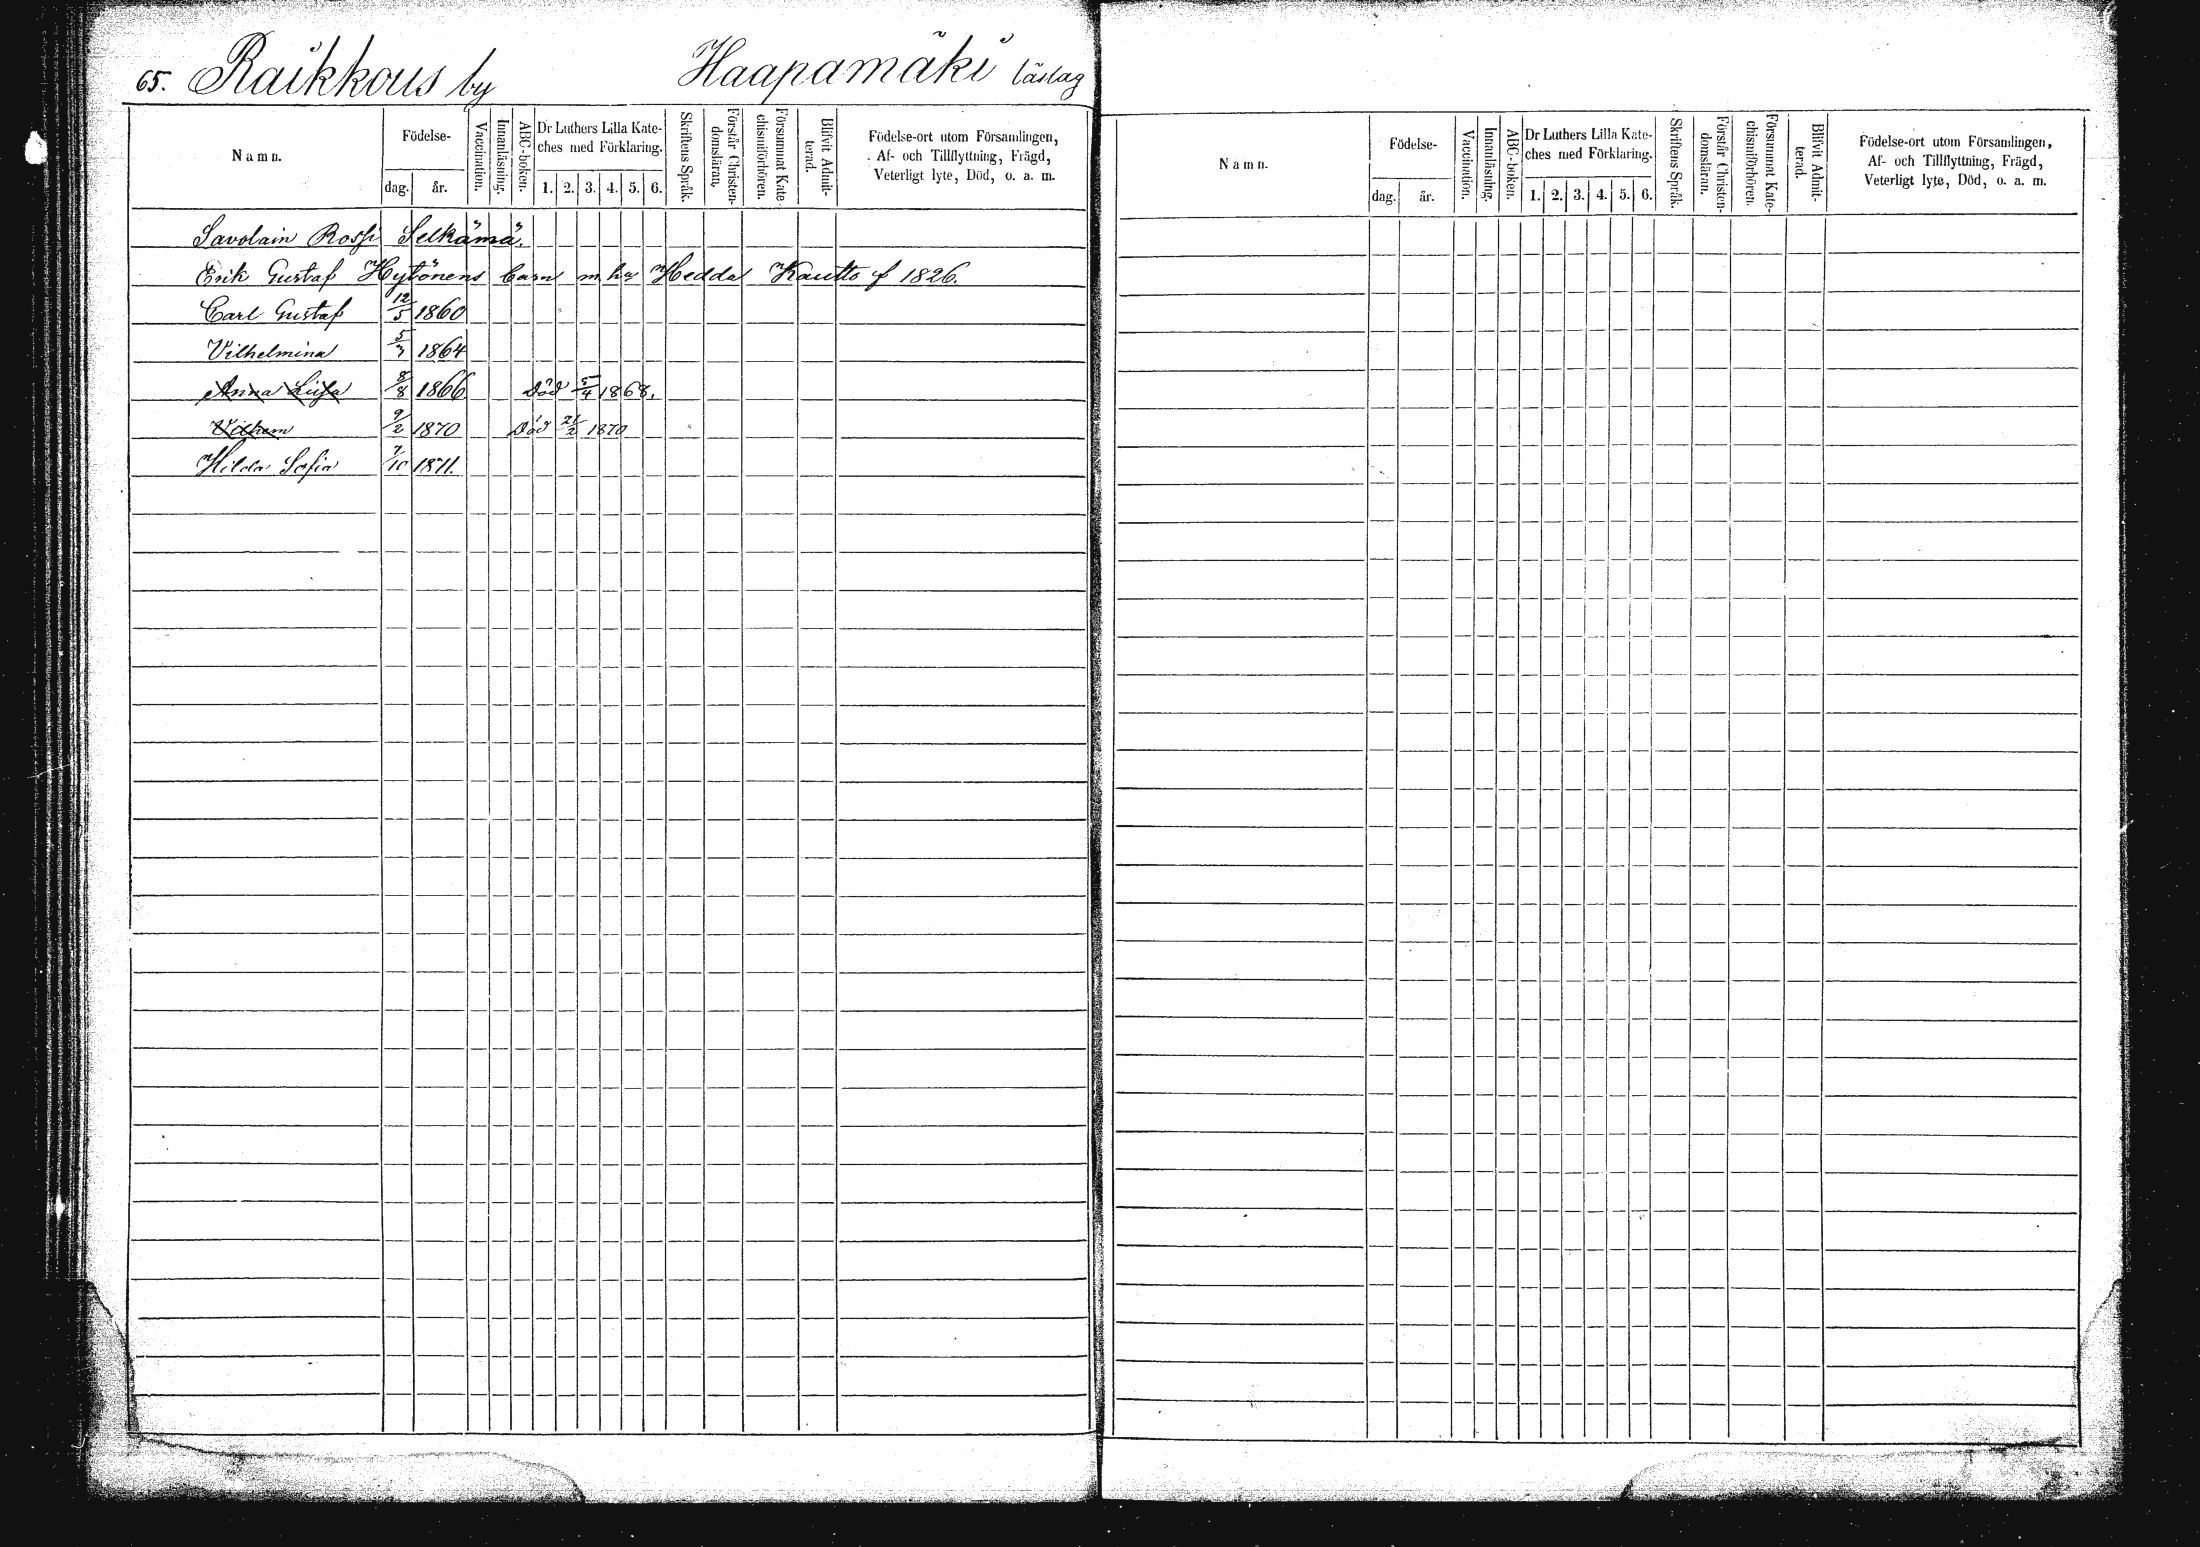 65. Raikkous by Haapamäki läslag
Namn.
Födelse-
dag. år.
Vaccination.
Innanläsning.
ABC-boken.
Dr Luthers Lilla Kate-
ches med Förklaring.
1. 2. 3. 4. 5. 6.
Skriftens Språk.
Förstår Christen-
domsläran.
Försummat Kate-
chismiförhören.
Blifvit Admit-
terad.
Födelse-ort utom Församlingen,
Af- och Tillflyttning, Frägd,
Veterligt lyte, Död, o. a. m.
Savolain Rossi Selkämä.
Erik Gustaf Hytönens barn m. h. Hedda Kautto f 1826.
Carl Gustaf 12/5 1860
Vilhelmina 5/7 1864
Anna Lisa 8/8 1866 Död 5/4 1868.
Vilhem 9/2 1870 Död 21/2 1870
Hilda Sofia 7/10 1871.
Namn.
Födelse-
dag. år.
Vaccination.
Innanläsning.
ABC-boken.
Dr Luthers Lilla Kate-
ches med Förklaring.
1. 2. 3. 4. 5. 6.
Skriftens Språk.
Förstår Christen-
domsläran.
Försummat Kate-
chismiförhören.
Blifvit Admit-
terad.
Födelse-ort utom Församlingen,
Af- och Tillflyttning, Frägd,
Veterligt lyte, Död, o. a. m.